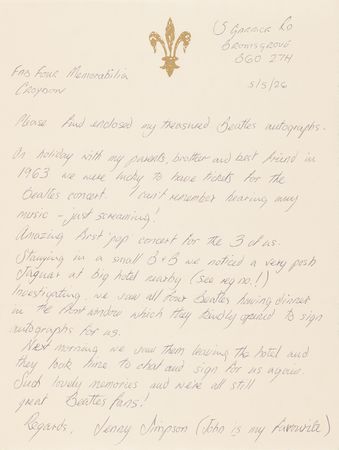 5 Garrick Rd
Bromsgrove
B60 2TH
5/5/26
Fab Four Memorabilia
Croydon
Please find enclosed my treasured Beatles autographs.
On holiday with my parents, brother and best friend in
1963 we were lucky to have tickets for the
Beatles concert. I can't remember hearing any
music - just screaming!
Amazing first pop concert for the 3 of us.
Staying in a small B+B we noticed a very posh
Jaguar at big hotel nearby (see reg no.!)
Investigating, we saw all four Beatles having dinner
in the front window which they kindly opened to sign
autographs for us.
Next morning we saw them leaving the hotel and
they took time to chat and sign for us again.
Such lovely memories and we're all still
great Beatles fans!
Regards, Jenny Simpson (John is my favourite)